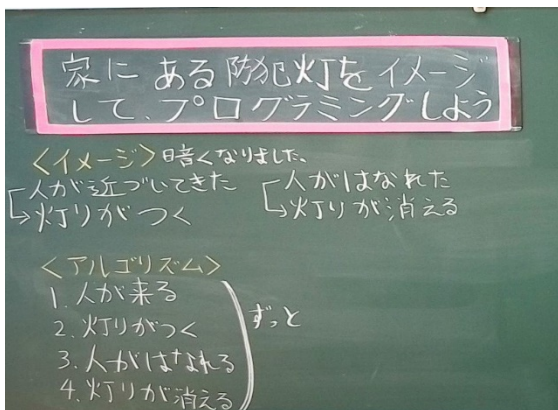 家にある防犯灯をイメージ
して、プログラミングしよう
<イメージ>暗くなりました。
人が近づいてきた
→灯りがつく
人がはなれた
→灯りが消える
<アルゴリズム>
1.人が来る
2.灯りがつく
3.人がはなれる
4.灯りが消える
ずっと